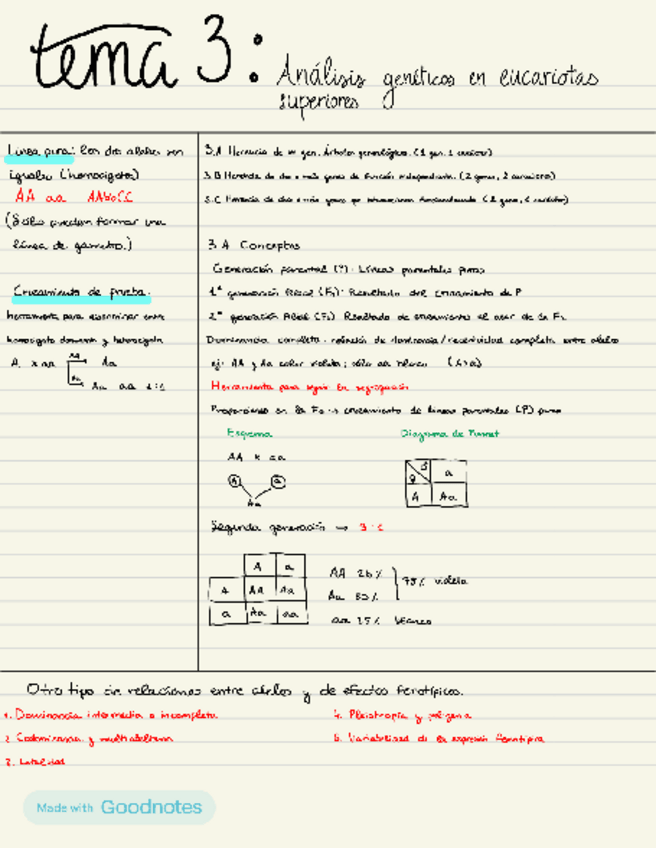 tema 3: Análisis genéticos en eucariotas
superiores
Línea pura: los dos alelos son
iguales (homocigoto)
AA aa AAbbCC
(Sólo pueden formar una
línea de gametos.)
Cruzamiento de prueba.
herramienta para discriminar entre
homocigoto dominante y heterocigoto
A_ x aa Aa
Aa aa 1:1
3.A Herencia de un gen. Árboles genealógicos. (1 gen, 1 carácter)
3.B Herencia de dos o más genes de función independiente. (2 genes, 2 caracteres)
3.C Herencia de dos o más genes que interaccionan (2 genes, 1 carácter)
3.A Conceptos
Generación parental (P): Líneas parentales puras
1ª generación filial (F1): Resultado del cruzamiento de P
2ª generación filial (F2) Resultado de cruzamiento al azar de la F1
Dominancia completa: relación de dominancia/recesividad completa entre alelos
ej: AA y Aa color violeta; sólo aa blanco (A>a)
Herramienta para seguir la segregación
Proporciones en la F2 cruzamiento de líneas parentales (P) puras
Esquema
AA x aa
A a
Aa
Diagrama de Punnet
♂ a
♀
A Aa
Segunda generación → 3:1
A a
A AA Aa
a Aa aa
AA 25%
Aa 50%
75% violeta
aa 25% blanco
Otro tipo de relaciones entre alelos y de efectos fenotípicos.
1. Dominancia intermedia o incompleta
2. Codominancia y multialelismo
3. Letalidad
4. Pleiotropía y poligenia
5. Variabilidad de la expresión fenotípica
Made with Goodnotes